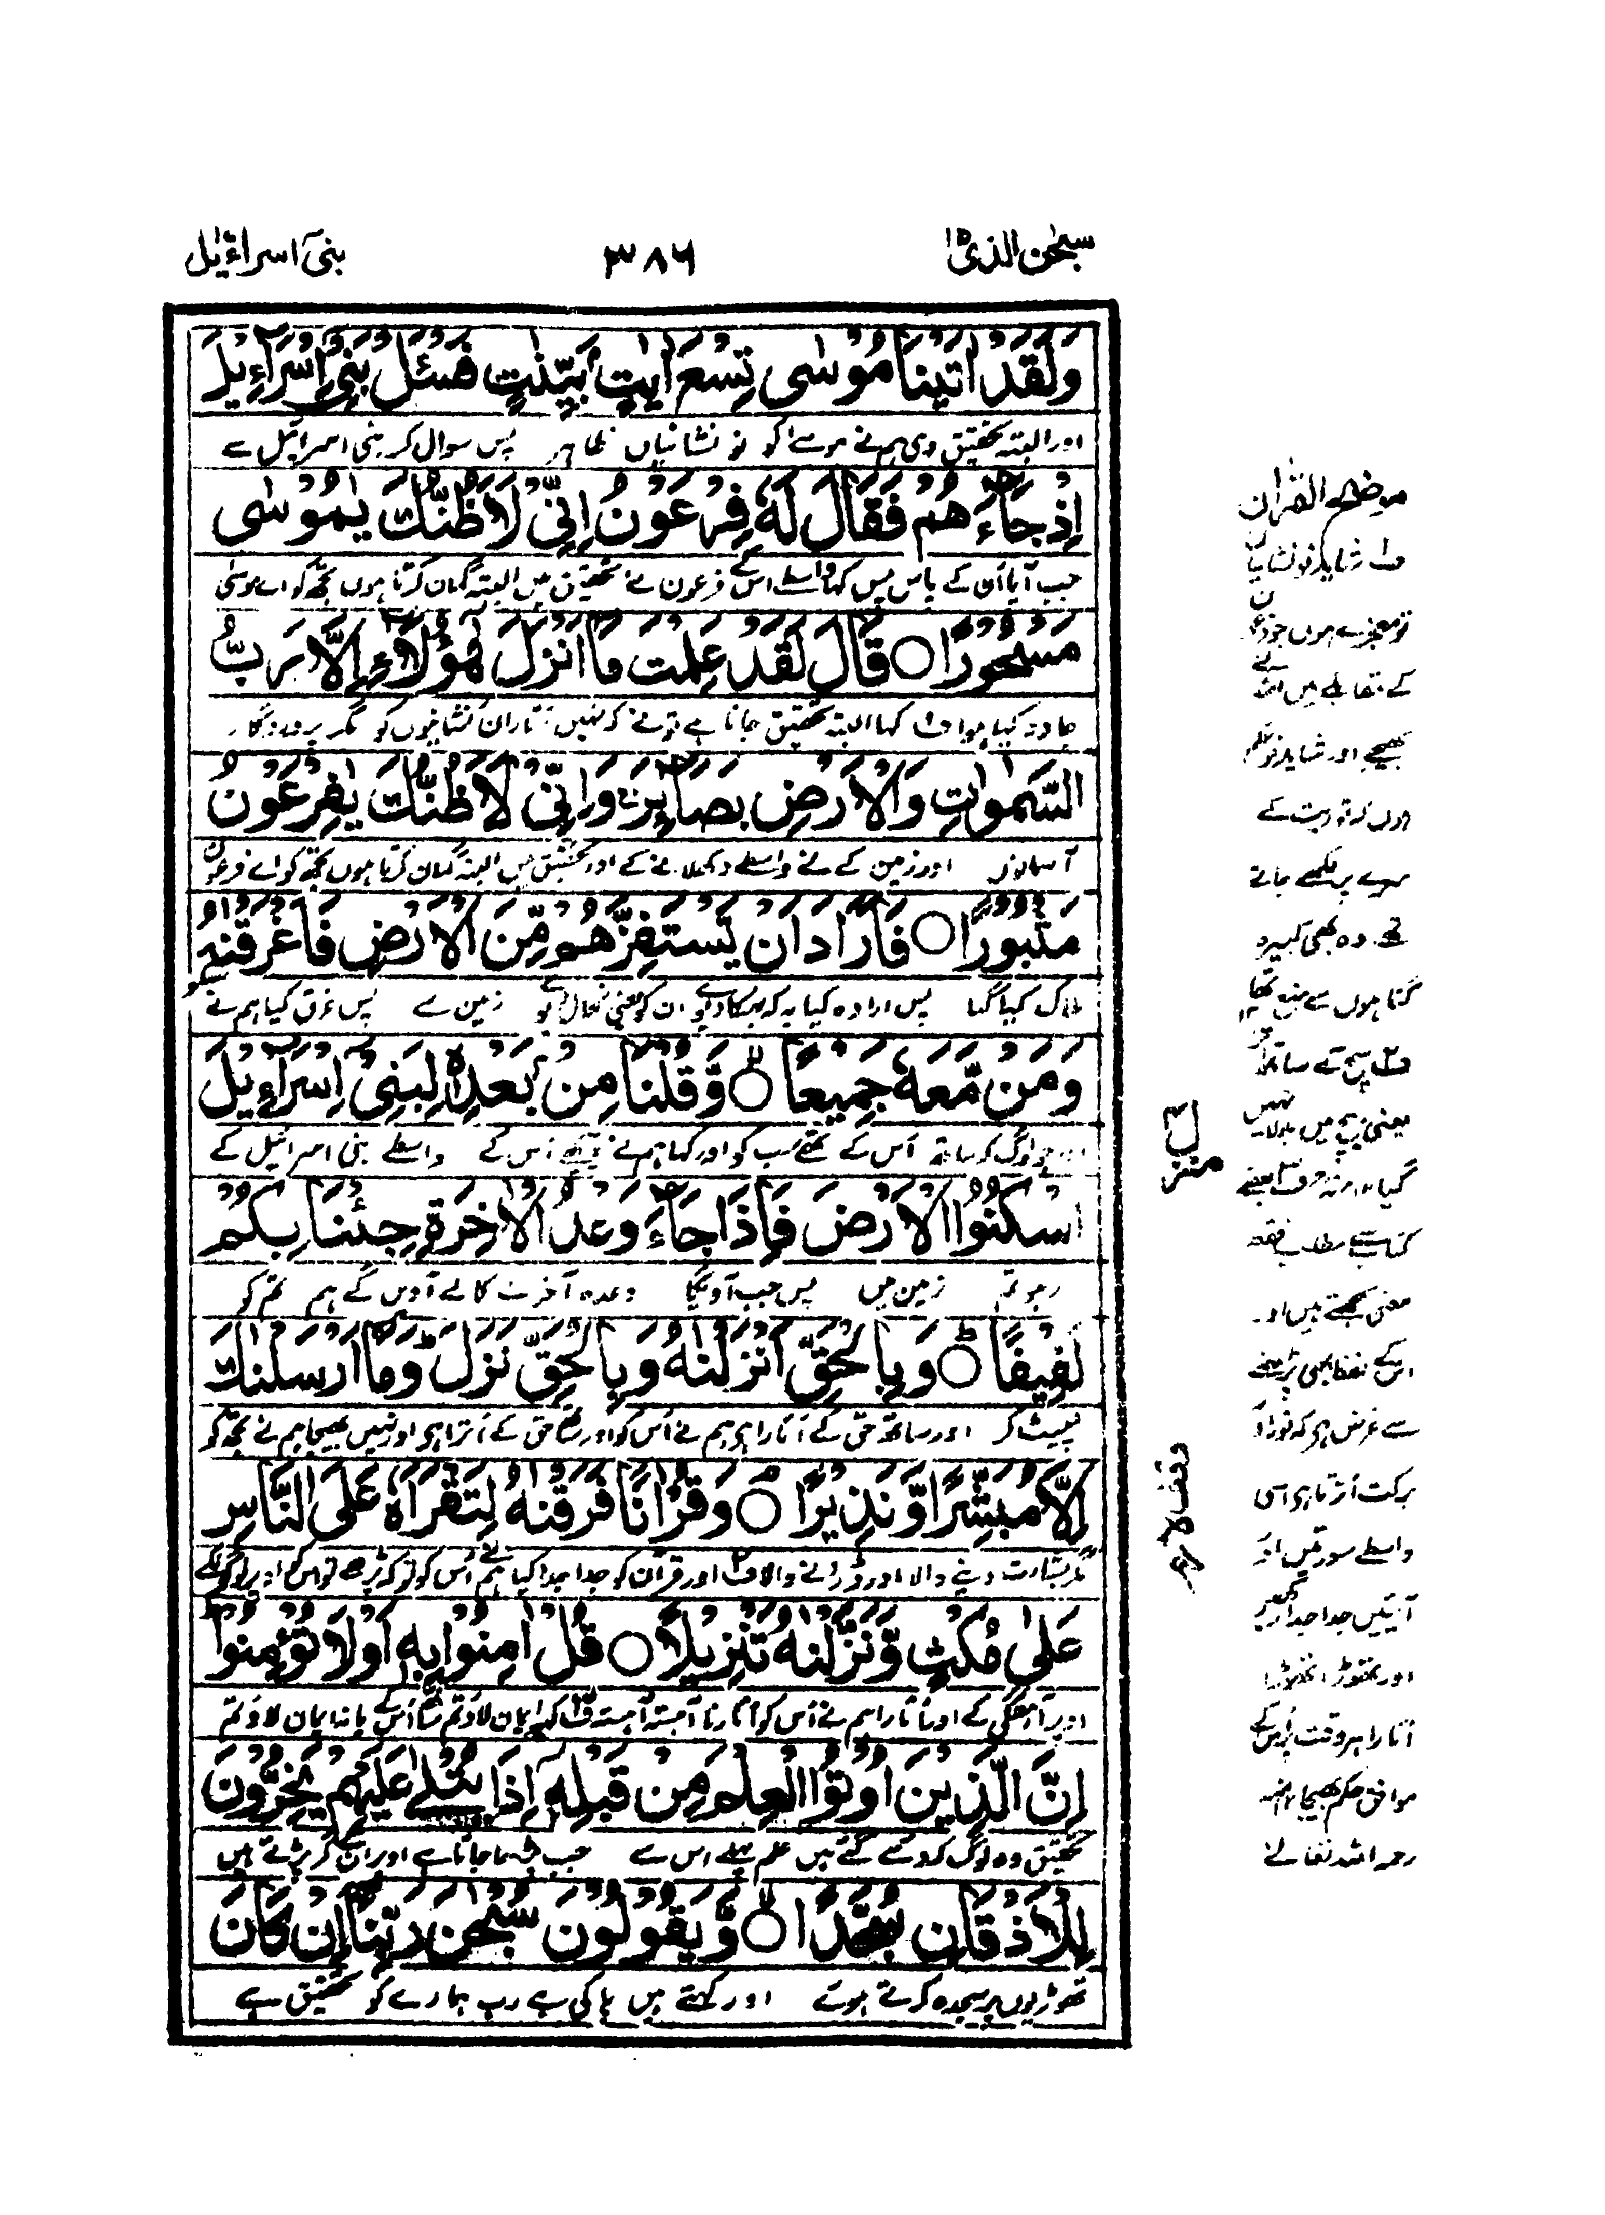 سبحن الذی ۱۵
۳۸۶
بنیٓ اسراءیل
وَلَقَدْ اٰتَیْنَا مُوْسٰی تِسْعَ اٰیٰتٍۭ بَیِّنٰتٍ فَسْـَٔلْ بَنِیْۤ اِسْرَآءِیْلَ
اور البتہ تحقیق دی ہم نے موسےٰ کو نو نشانیاں ظاہر پس سوال کر بنی اسرائیل سے
اِذْ جَآءَهُمْ فَقَالَ لَهٗ فِرْعَوْنُ اِنِّیْ لَاَظُنُّكَ یٰمُوْسٰی
جب آیا اُن کے پاس پس کہا واسطے اس کے فرعون نے تحقیق میں البتہ گمان کرتا ہوں تجھ کو اے موسیٰ
مَسْحُوْرًا ○ قَالَ لَقَدْ عَلِمْتَ مَاۤ اَنْزَلَ هٰۤؤُلَآءِ اِلَّا رَبُّ
جادو کیا ہوا ف کہا البتہ تحقیق جانا ہے تو نے کہ نہیں اتارا ان نشانیوں کو مگر پروردگار
السَّمٰوٰتِ وَالْاَرْضِ بَصَآئِرَ ۚ وَاِنِّیْ لَاَظُنُّكَ یٰفِرْعَوْنُ
آسمانوں اور زمین کے نے واسطے دکھلانے کے اور تحقیق میں البتہ گمان کرتا ہوں تجھ کو اے فرعون
مَثْبُوْرًا ○ فَاَرَادَ اَنْ یَّسْتَفِزَّهُمْ مِّنَ الْاَرْضِ فَاَغْرَقْنٰهُ
ہلاک کیا گیا پس ارادہ کیا یہ کہ بہکا دیوے ان کو یعنی نکال دیوے زمین سے پس غرق کیا ہم نے اسکو
وَمَنْ مَّعَهٗ جَمِیْعًا ○ وَّقُلْنَا مِنْۢ بَعْدِهٖ لِبَنِیْۤ اِسْرَآءِیْلَ
اور جو لوگ کہ ساتھ اُس کے تھے سب کو اور کہا ہم نے پیچھے اُس کے واسطے بنی اسرائیل کے
اسْكُنُوا الْاَرْضَ فَاِذَا جَآءَ وَعْدُ الْاٰخِرَةِ جِئْنَا بِكُمْ
رہو تم زمین میں پس جب آوے گا وعدہ آخرت کا لے آویں گے ہم تم کو
لَفِیْفًا ○ وَبِالْحَقِّ اَنْزَلْنٰهُ وَبِالْحَقِّ نَزَلَ ؕ وَمَاۤ اَرْسَلْنٰكَ
لپیٹ کر اور ساتھ حق کے اُتارا ہے ہم نے اُس کو اور ساتھ حق کے اُترا ہے اور نہیں بھیجا ہم نے تجھ کو
اِلَّا مُبَشِّرًا وَّنَذِیْرًا ○ وَقُرْاٰنًا فَرَقْنٰهُ لِتَقْرَاَهٗ عَلَی النَّاسِ
مگر بشارت دینے والا اور ڈرانے والا ف اور قرآن کو جدا جدا کیا ہم نے اُس کو تو کہ پڑھے تو اس کو اوپر لوگوں کے
عَلٰی مُكْثٍ وَّنَزَّلْنٰهُ تَنْزِیْلًا ○ قُلْ اٰمِنُوْا بِهٖۤ اَوْ لَا تُؤْمِنُوْا
اوپر آہستگی کے اور اُتارا ہم نے اُس کو اُتارنا آہستہ آہستہ ف کہہ ایمان لاؤ تم ساتھ اُس کے یا نہ ایمان لاؤ تم
اِنَّ الَّذِیْنَ اُوْتُوا الْعِلْمَ مِنْ قَبْلِهٖۤ اِذَا یُتْلٰی عَلَیْهِمْ یَخِرُّوْنَ
تحقیق وہ لوگ کہ دئے گئے ہیں علم پہلے اس سے جب پڑھا جاتا ہے اوپر اُن کے گر پڑتے ہیں
لِلْاَذْقَانِ سُجَّدًا ○ وَّیَقُوْلُوْنَ سُبْحٰنَ رَبِّنَاۤ اِنْ كَانَ
ٹھوڑیوں پر سجدہ کرتے ہوئے اور کہتے ہیں پاکی ہے رب ہمارے کو تحقیق ہے
موضح القرآن
ف شاید نو نشانیاں
نو معجزے ہوں جو فرعون
کے مقابلے میں اللہ نے
بھیجے اور شاید نو حکم
ہوں کہ توریت کے
سرے پر لکھے جاتے
تھے۔ وہ بھی کبیرہ
گناہوں سے منع تھا ۱۲
ف سچ کے ساتھ اُترا
یعنی بیچ میں بدلا نہیں
گیا
معنی سمجھتے ہیں اور
اس کے لفظ بھی پڑھنے
سے غرض ہے کہ نور اور
برکت اُترتا ہے اسی
واسطے سورتیں اور
آیتیں جدا جدا رکھیں
اور تھوڑا تھوڑا
اُتارا ہر وقت پر اس کے
موافق حکم بھیجا ۱۲ منہ
رحمہ اللہ تعالےٰ
منزل ۴